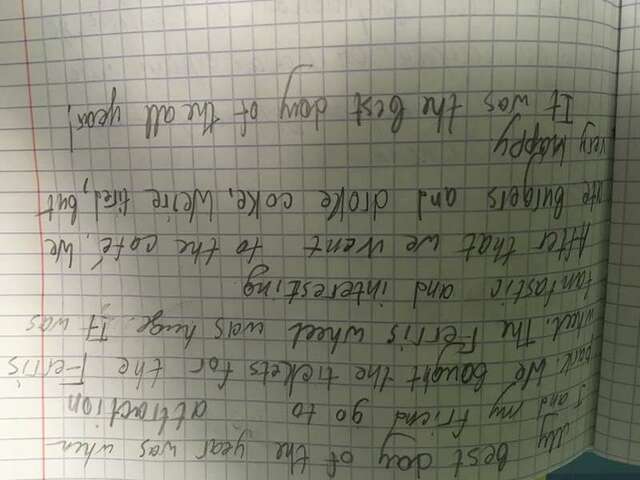 My best day of the year was when
I and my friend go to attraction
park. We bought the tickets for the Ferris
wheel. The Ferris wheel was huge. It was
fantastic and interesting.
After that we went to the café. We
ate burgers and droke coke. We're tired, but
very happy.
It was the best day of the all year!